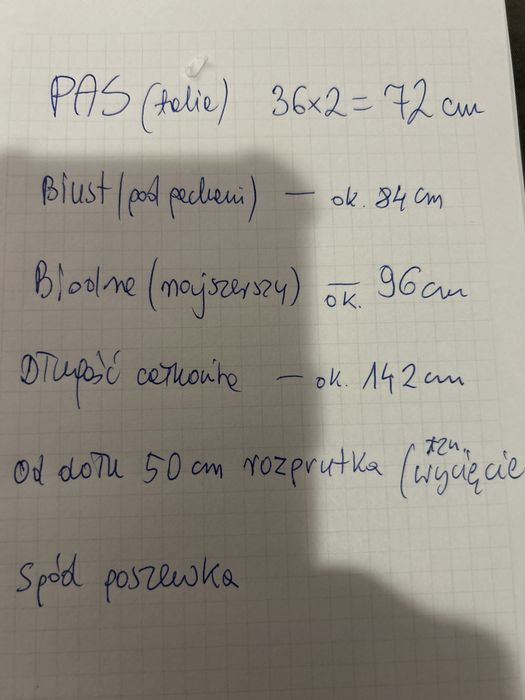 PAS (talie) 36x2 = 72 cm
Biust (pod pachami) — ok. 84 cm
Biodra (najszerszy) — ok. 96 cm
Długość całkowita — ok. 142 cm
Od dołu 50 cm rozprutka (tzn. wycięcie
Spód poszewka